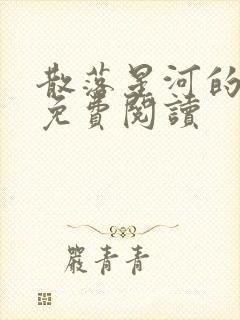 散落星河的
免費閱讀
嚴青青